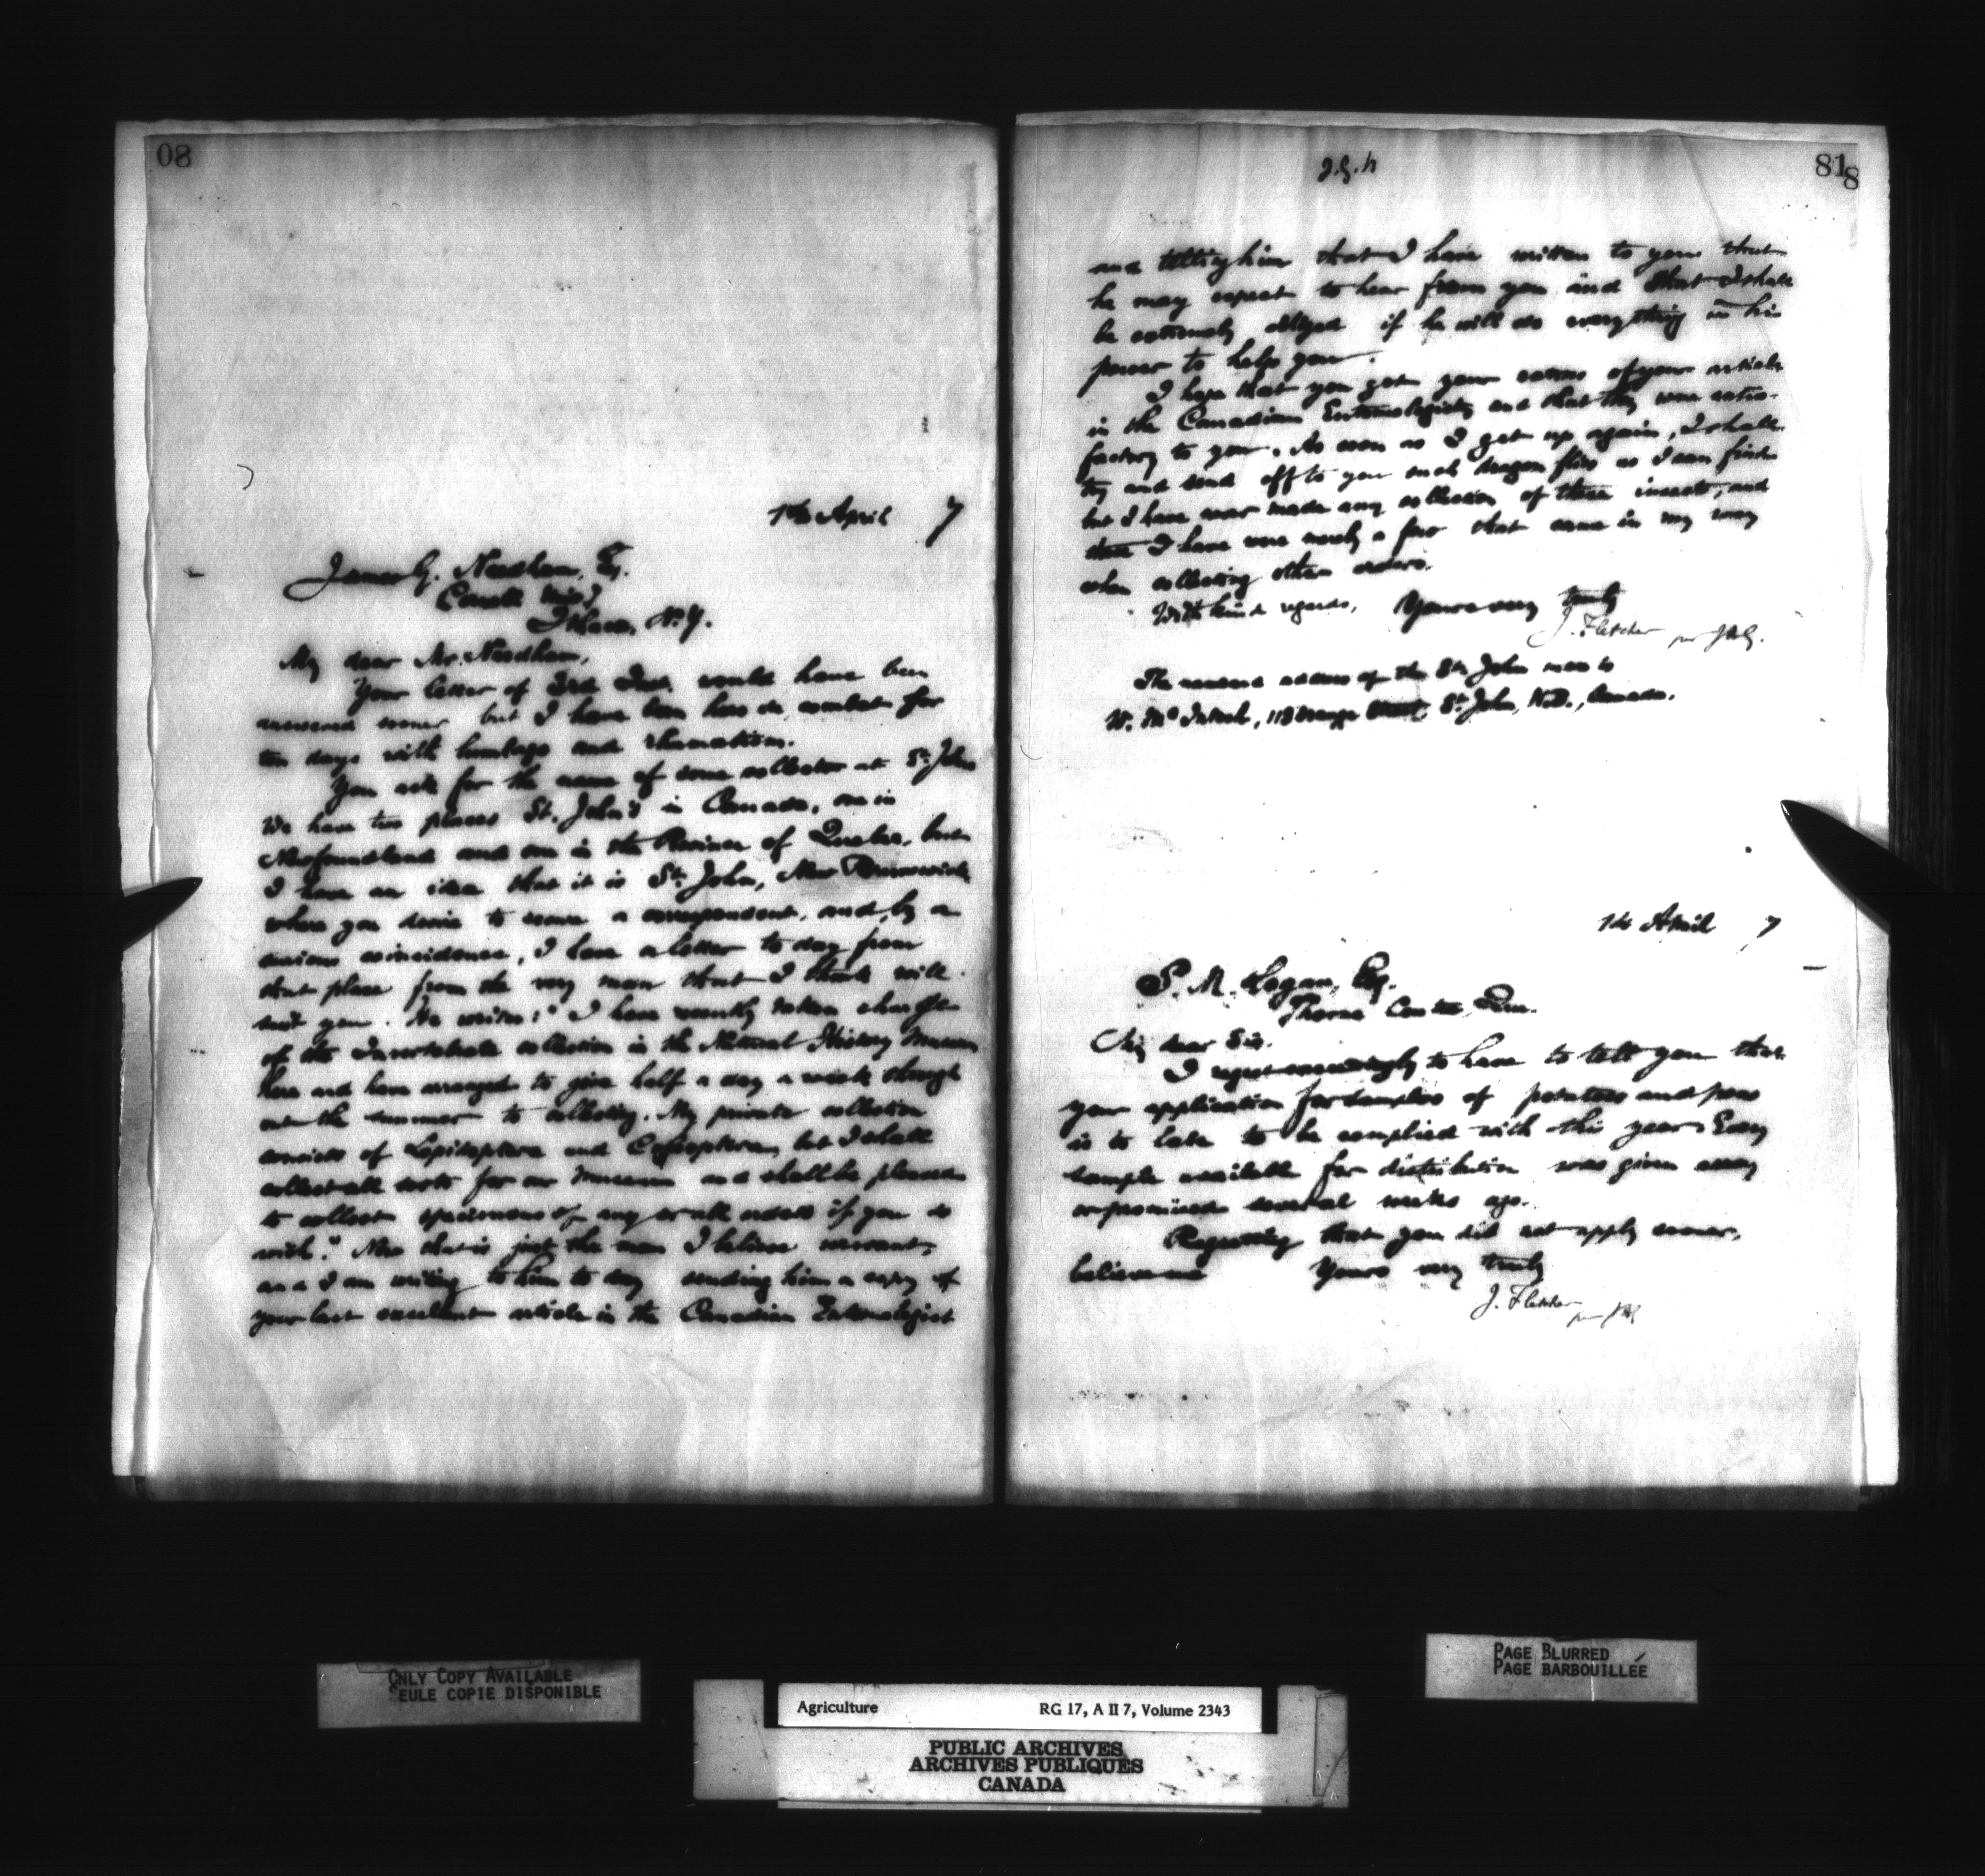 08
14 April 7
James G. Needham, Esq.
Cornell Univ.
Ithaca, N.Y.
My dear Mr. Needham,
Your letter of 3rd Inst. would have been
answered sooner but I have been hors de combat for
ten days with lumbago and rheumatism.
You ask for the name of some collector at St. Johns
We have two places St. John's in Canada, one in
Newfoundland and one in the Province of Quebec, but
I have an idea that it is St. John, New Brunswick
where you desire to secure a correspondent, and, by a
curious coincidence, I have a letter to day from
that place from the very man that I think will
suit you. He writes: "I have recently taken charge
of the Invertebrate collection in the Natural History Museum
here and have arranged to give half a day a week through
out the summer to collecting. My private collection
consists of Lepidoptera and Coleoptera, but I shall
collect all sorts for our Museum and shall be pleased
to collect specimens of any or all orders if you so
wish." Now that is just the man I believe you want,
and I am writing to him to day sending him a copy of
your last excellent article in the Canadian Entomologist
J.G.N
81
8
and telling him that I have written to you that
he may expect to hear from you and that I shall
be extremely obliged if he will do everything in his
power to help you.
I hope that you got your extras of your article
in the Canadian Entomologist and that they were satis-
factory to you. As soon as I get up again, I shall
try and send off to you such dragon flies as I can find
but I have never made any collection of these insects, and
those I have were merely a few that came in my way
when collecting other orders.
With kind regards, Yours very truly
J. Fletcher per JAG.
The name and address of the St. John man is
W. McIntosh, 118 Orange Street, St. John, N.B., Canada.
14 April 7
S. M. Logan, Esq.
Thorne Centre, Que.
My dear Sir,
I regret exceedingly to have to tell you that
your application for samples of potatoes and peas
is to late to be complied with this year. Every
sample available for distribution was given away
or promised several weeks ago.
Regretting that you did not apply sooner,
believe me Yours very truly
J. Fletcher
per JAG
ONLY COPY AVAILABLE
SEULE COPIE DISPONIBLE
PAGE BLURRED
PAGE BARBOUILLÉE
Agriculture RG 17, A II 7, Volume 2343
PUBLIC ARCHIVES
ARCHIVES PUBLIQUES
CANADA